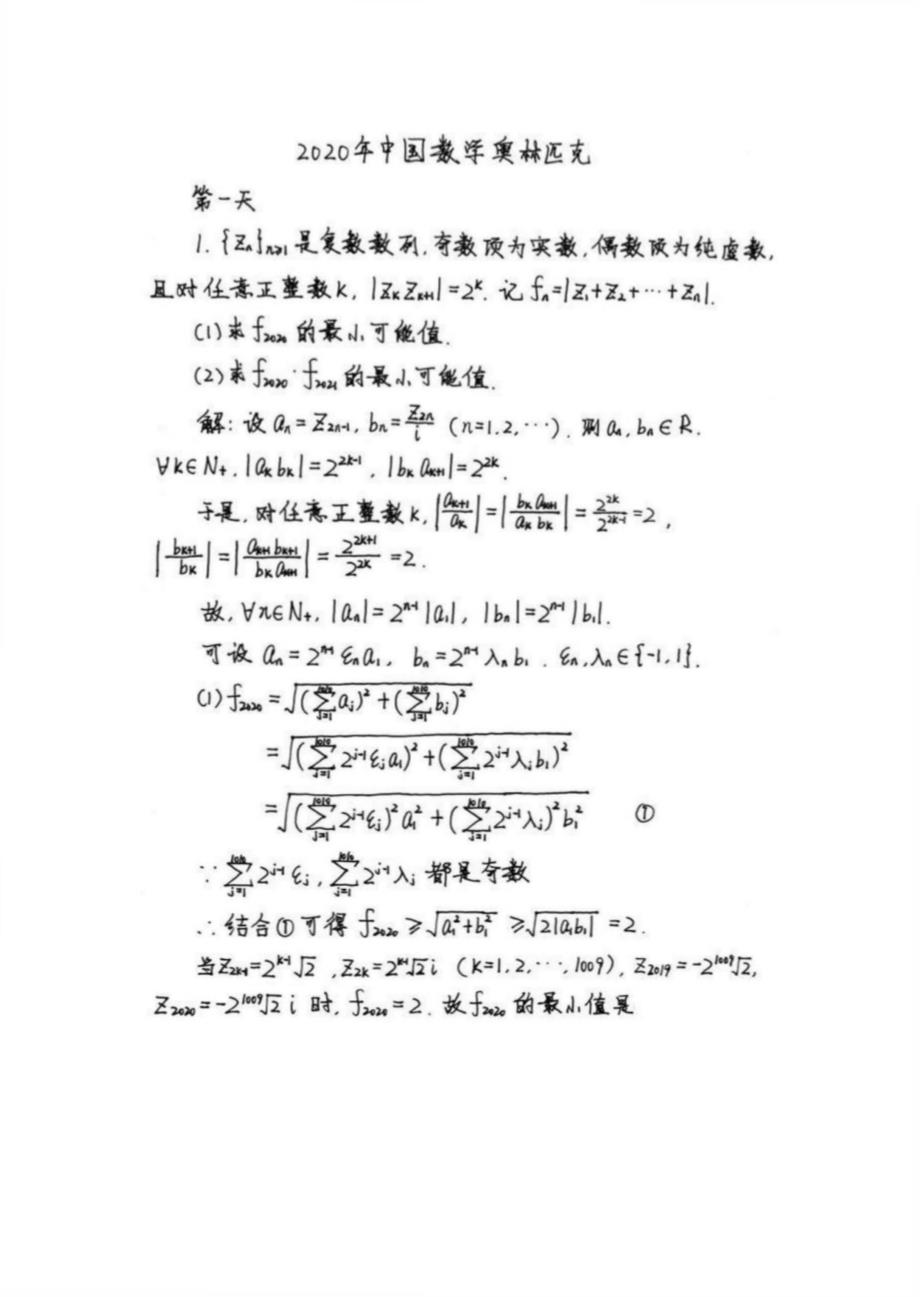 2020年中国数学奥林匹克
第一天
1. {Zₙ}ₙ≥₁是复数数列,奇数项为实数,偶数项为纯虚数,
且对任意正整数k, |ZₖZₖ₊₁|=2ᵏ. 记fₙ=|Z₁+Z₂+⋯+Zₙ|.
(1)求f₂₀₂₀的最小可能值.
(2)求f₂₀₂₀·f₂₀₂₁的最小可能值.
解: 设aₙ=Z₂ₙ₋₁, bₙ=Z₂ₙ/i (n=1,2,⋯). 则aₙ,bₙ∈R.
∀k∈N₊, |aₖbₖ|=2²ᵏ⁻¹, |bₖaₖ₊₁|=2²ᵏ.
于是,对任意正整数k, |aₖ₊₁/aₖ|=|bₖaₖ₊₁/aₖbₖ|=2²ᵏ/2²ᵏ⁻¹=2,
|bₖ₊₁/bₖ|=|aₖ₊₁bₖ₊₁/bₖaₖ₊₁|=2²ᵏ⁺¹/2²ᵏ=2.
故, ∀n∈N₊, |aₙ|=2ⁿ⁻¹|a₁|, |bₙ|=2ⁿ⁻¹|b₁|.
可设 aₙ=2ⁿ⁻¹εₙa₁, bₙ=2ⁿ⁻¹λₙb₁. εₙ,λₙ∈{-1,1}.
(1) f₂₀₂₀=√((∑_{j=1}^{1010}aⱼ)²+(∑_{j=1}^{1010}bⱼ)²)
=√((∑_{j=1}^{1010}2ʲ⁻¹εⱼa₁)²+(∑_{j=1}^{1010}2ʲ⁻¹λⱼb₁)²)
=√((∑_{j=1}^{1010}2ʲ⁻¹εⱼ)²a₁²+(∑_{j=1}^{1010}2ʲ⁻¹λⱼ)²b₁²) ①
∵ ∑_{j=1}^{1010}2ʲ⁻¹εⱼ, ∑_{j=1}^{1010}2ʲ⁻¹λⱼ 都是奇数
∴ 结合①可得 f₂₀₂₀≥√(a₁²+b₁²)≥√(2|a₁b₁|)=2.
当Z₂ₖ₋₁=2ᵏ⁻¹√2, Z₂ₖ=2ᵏ⁻¹√2i (k=1,2,⋯,1009), Z₂₀₁₉=-2¹⁰⁰⁹√2,
Z₂₀₂₀=-2¹⁰⁰⁹√2i 时, f₂₀₂₀=2. 故f₂₀₂₀的最小值是